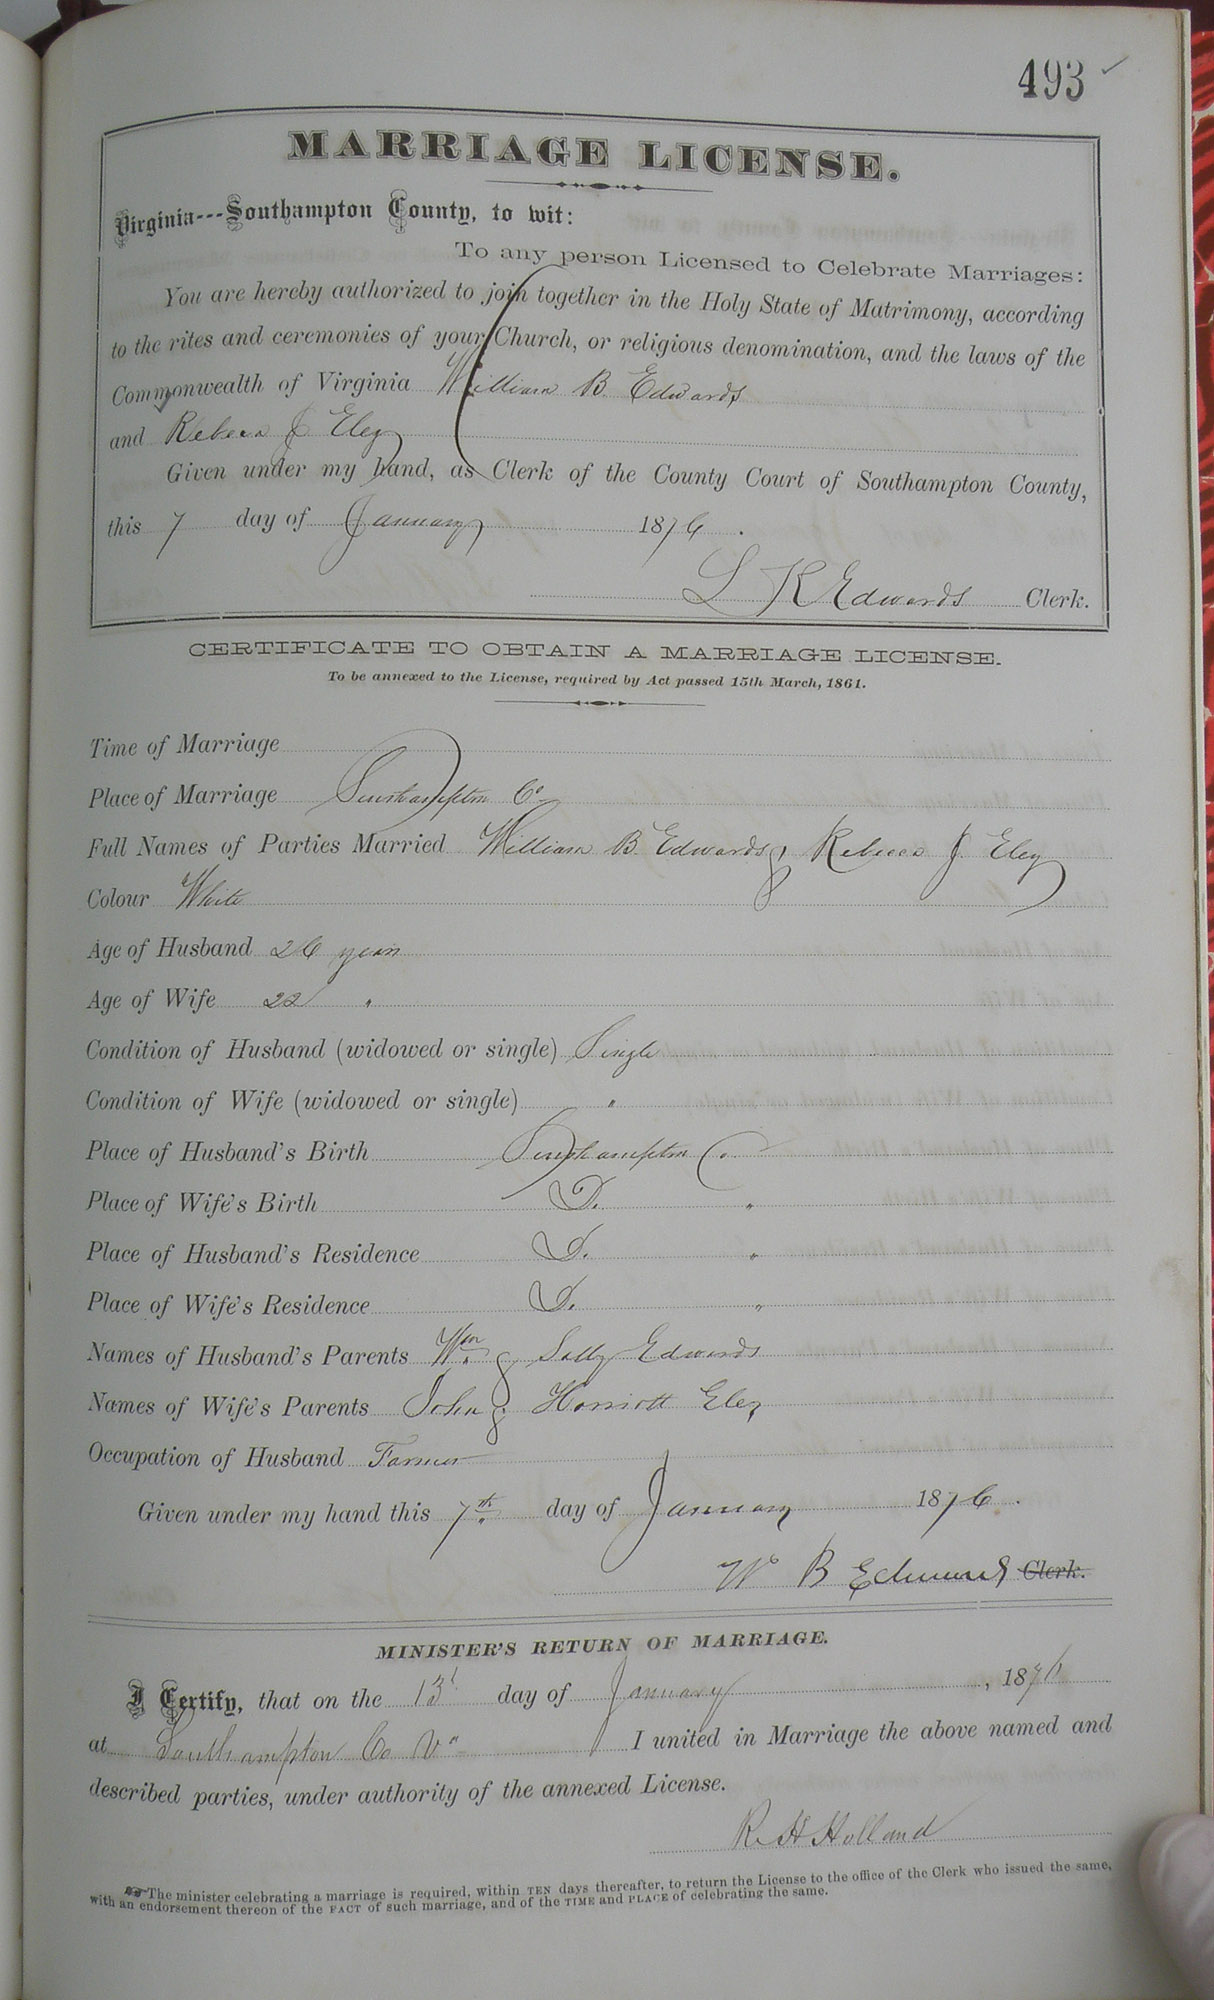 493 ✓
MARRIAGE LICENSE.
Virginia---Southampton County, to wit:
To any person Licensed to Celebrate Marriages:
You are hereby authorized to join together in the Holy State of Matrimony, according
to the rites and ceremonies of your Church, or religious denomination, and the laws of the
Commonwealth of Virginia William B. Edwards
and Rebeca J Eley
Given under my hand, as Clerk of the County Court of Southampton County,
this 7 day of January 1876.
L R Edwards Clerk.
CERTIFICATE TO OBTAIN A MARRIAGE LICENSE.
To be annexed to the License, required by Act passed 15th March, 1861.
Time of Marriage
Place of Marriage Southampton Co
Full Names of Parties Married William B. Edwards & Rebecca J. Eley
Colour White
Age of Husband 26 years
Age of Wife 22 "
Condition of Husband (widowed or single) Single
Condition of Wife (widowed or single) "
Place of Husband's Birth Southampton Co.
Place of Wife's Birth D. "
Place of Husband's Residence D. "
Place of Wife's Residence D. "
Names of Husband's Parents Wm. & Sally Edwards
Names of Wife's Parents John & Harriott Eley
Occupation of Husband Farmer
Given under my hand this 7th day of January 1876.
W B Edwards Clerk.
MINISTER'S RETURN OF MARRIAGE.
I Certify, that on the 13' day of January, 1876
at Southampton Co Va I united in Marriage the above named and
described parties, under authority of the annexed License.
R. H. Holland
The minister celebrating a marriage is required, within TEN days thereafter, to return the License to the office of the Clerk who issued the same,
with an endorsement thereon of the FACT of such marriage, and of the TIME and PLACE of celebrating the same.